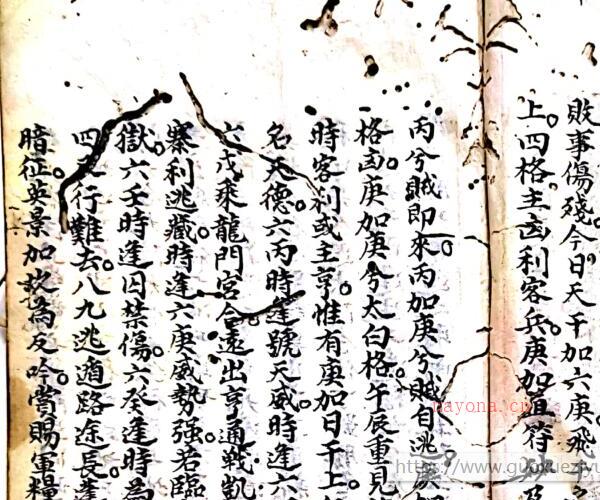 敗事傷殘今日天干加六庚飛
上四格主凶利客兵庚加直符
丙兮賊即來丙加庚兮賊自逃庚加
格凶庚加庚兮太白格午辰重見
時客利或主亨惟有庚加日干上
名天德六丙時逢號天威時逢六
六戊乘龍門宮合遠出亨通戰凱
寨利逃藏時逢六庚威勢强若臨
獄六壬時逢囚禁傷六癸逢時為
四 行難去八九逃遁路途長蓬
暗征英景加坎為反吟嘗賜軍糧
nayona.cn